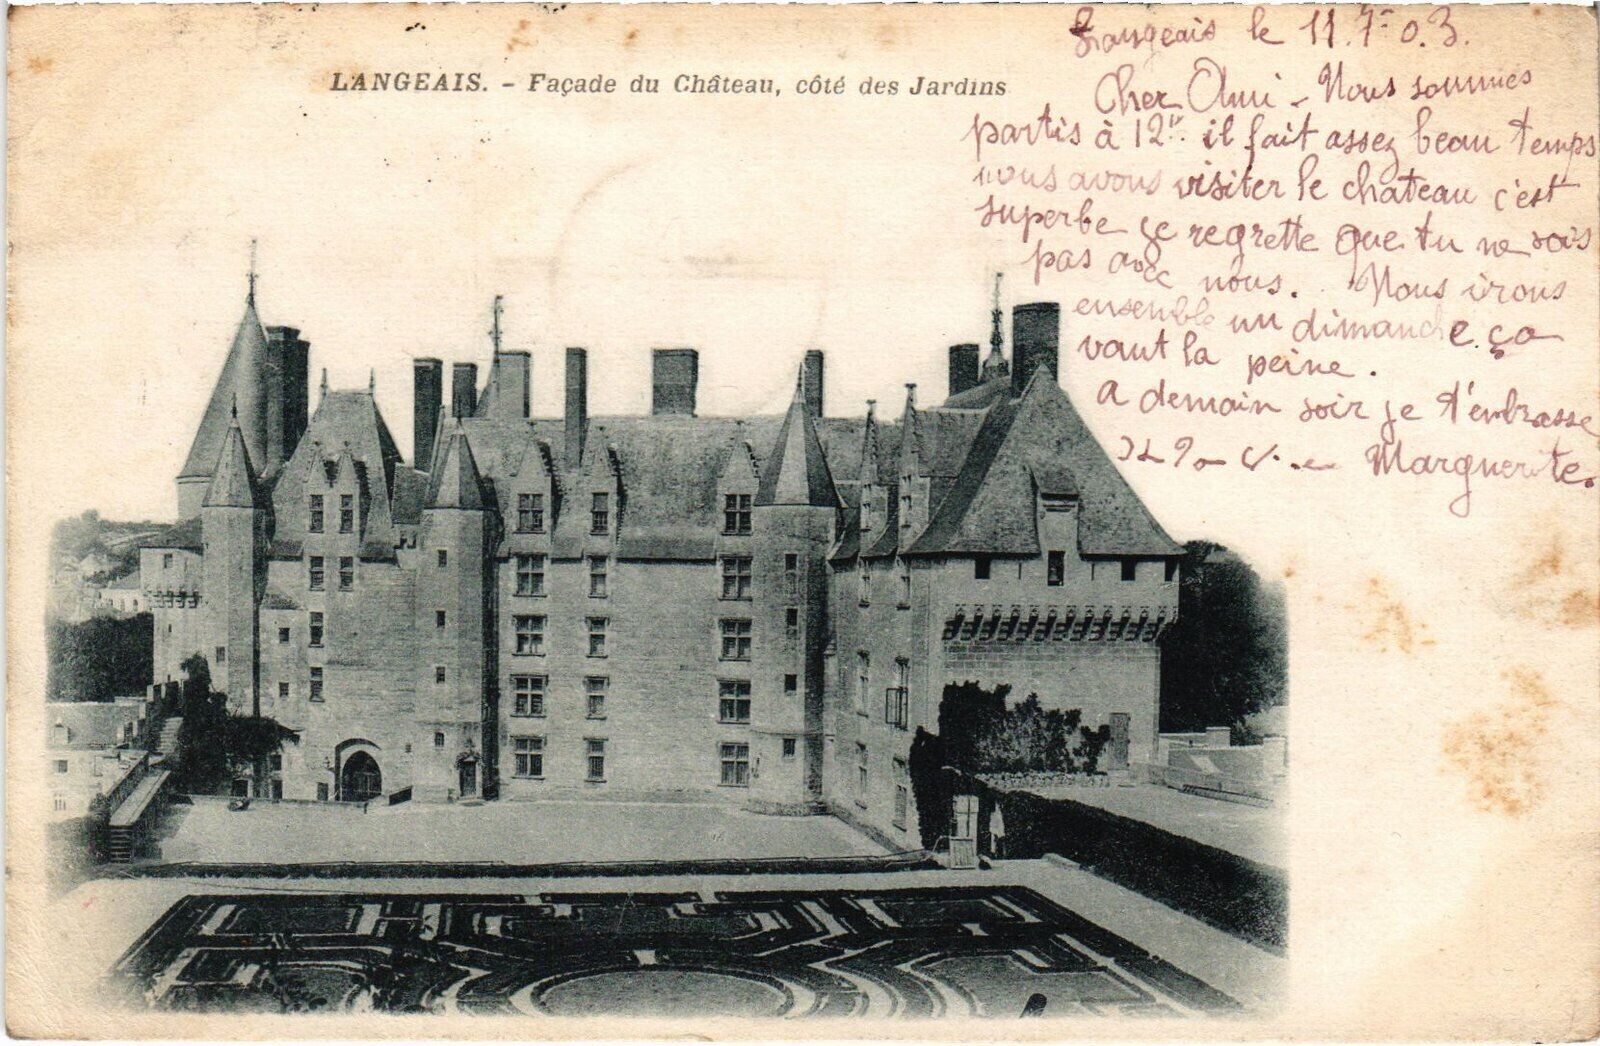 LANGEAIS. - Façade du Château, côté des Jardins
Langeais le 11.7-03.
Cher Ami - Nous sommes
partis à 12h. il fait assez beau temps
nous avons visiter le chateau c'est
superbe je regrette que tu ne sois
pas avec nous. Nous irons
ensemble un dimanche ça
vaut la peine.
A demain soir je t'embrasse
Marguerite.